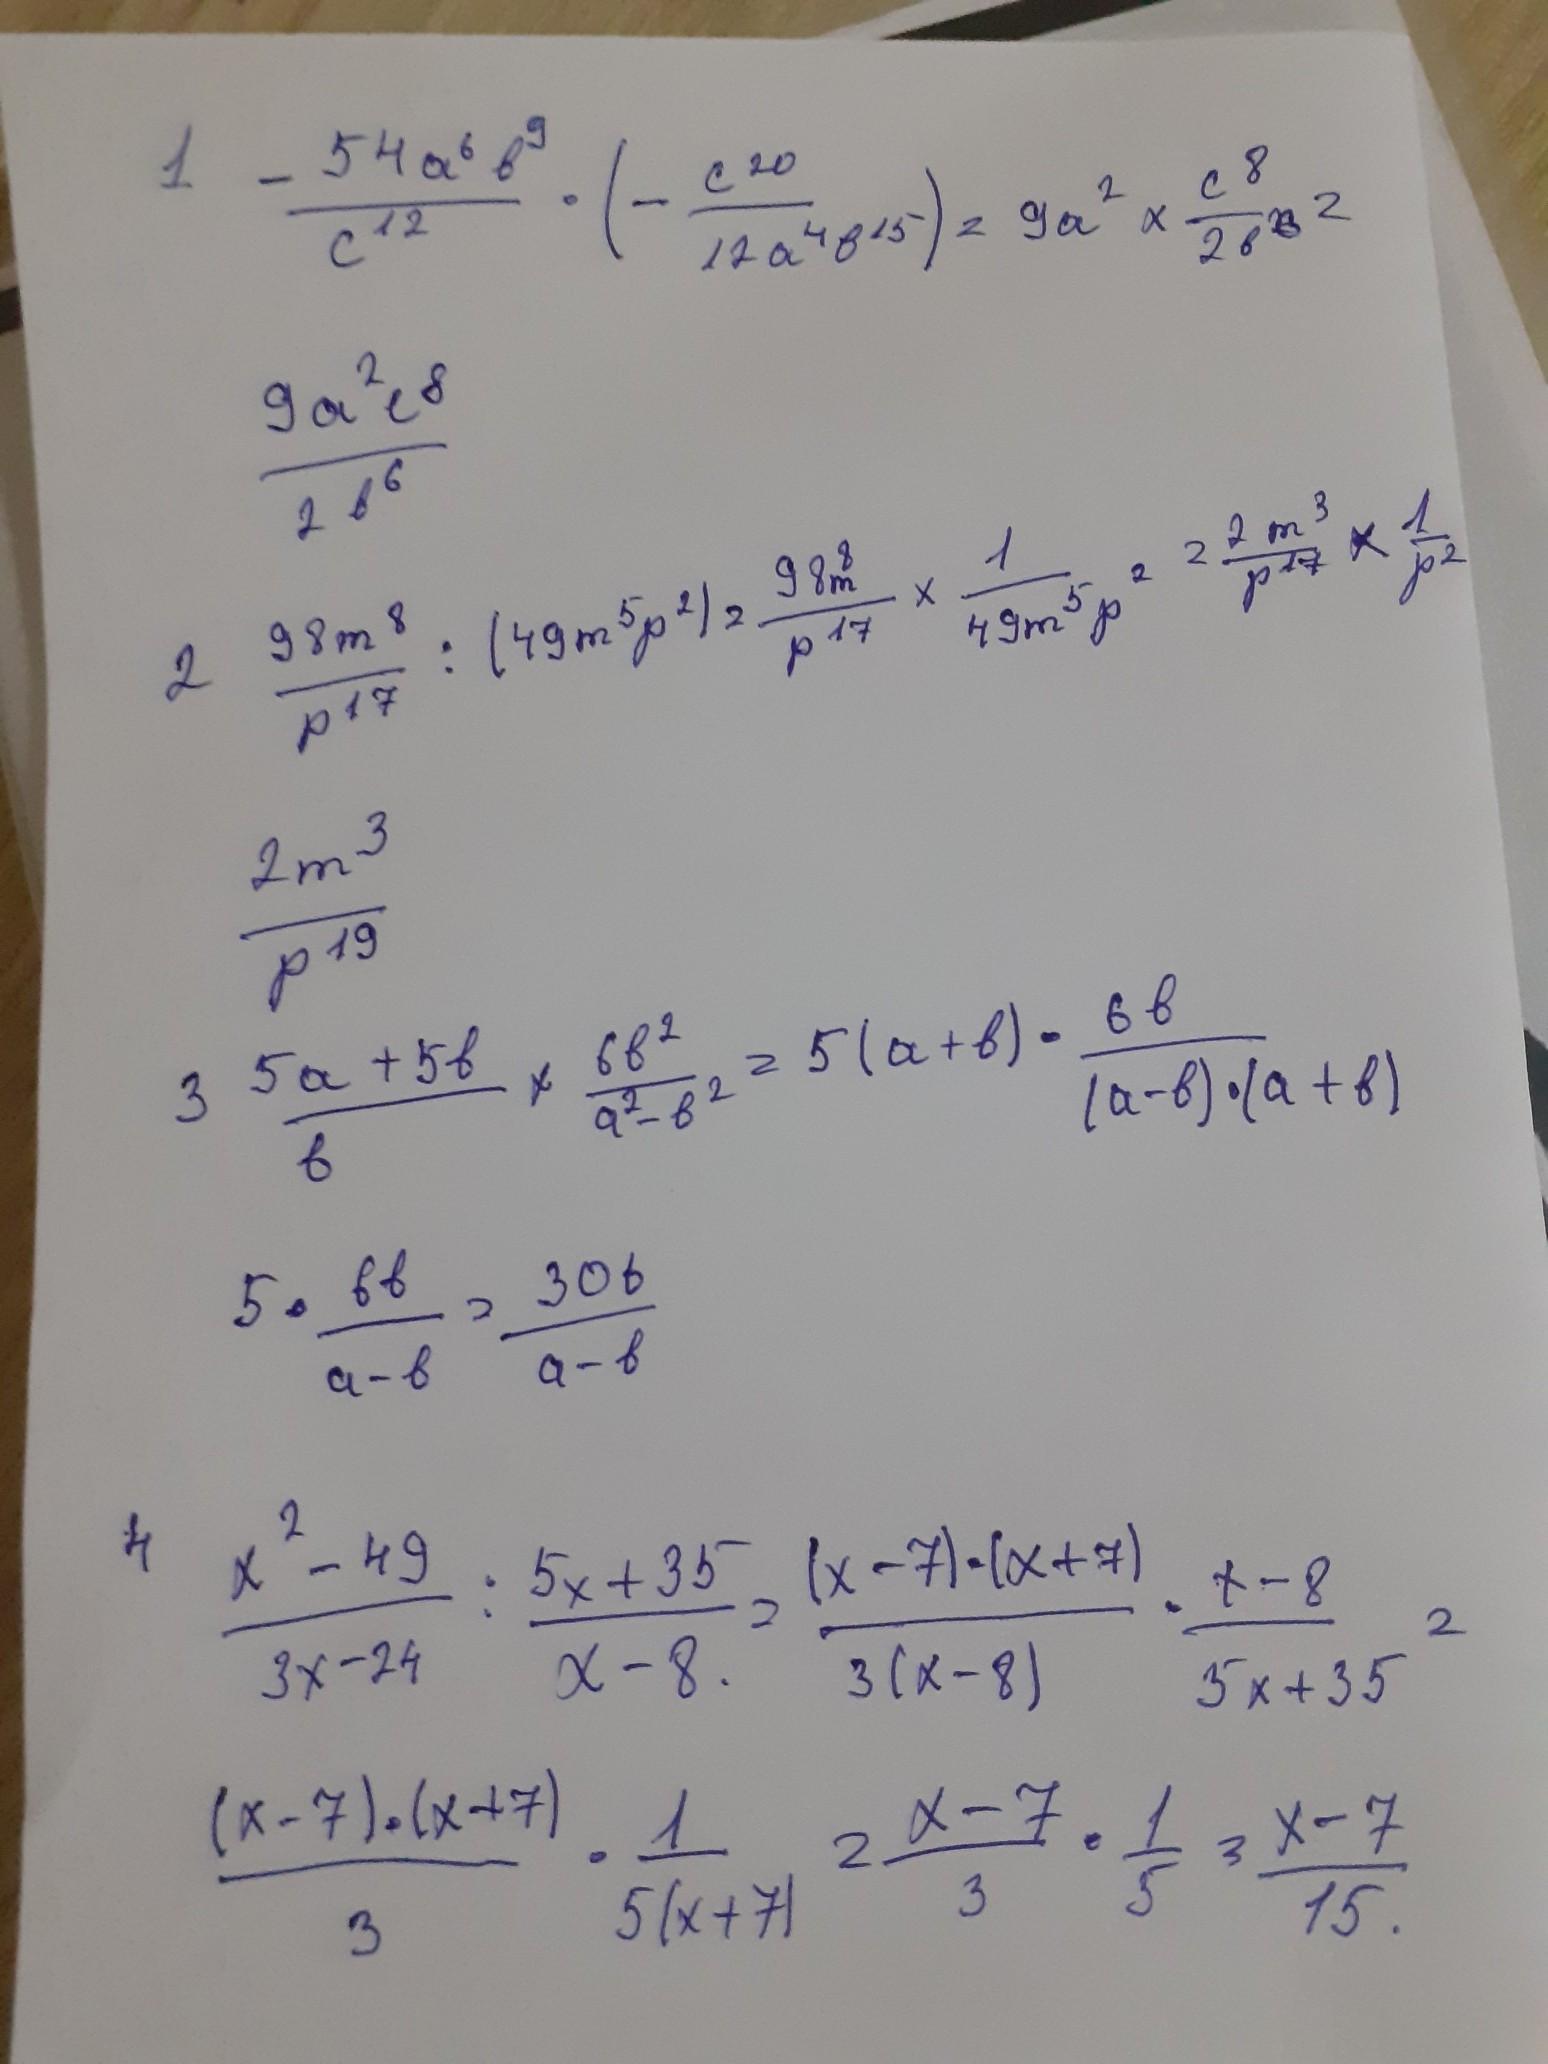 1 - 54a⁶b⁹/c¹² · (- c²⁰/12a⁴b¹⁵) = 9a² × c⁸/2b⁶ =
9a²c⁸/2b⁶
2 98m⁸/p¹⁷ : (49m⁵p²) = 98m⁸/p¹⁷ × 1/49m⁵p² = = 2m³/p¹⁷ × 1/p²
2m³/p¹⁹
3 5a+5b/b × 6b²/a²-b² = 5(a+b) · 6b/(a-b)·(a+b)
5 · 6b/a-b = 30b/a-b
4 x²-49/3x-24 : 5x+35/x-8. = (x-7)·(x+7)/3(x-8) · x-8/5x+35 =
(x-7)·(x+7)/3 · 1/5(x+7) = x-7/3 · 1/5 = x-7/15.